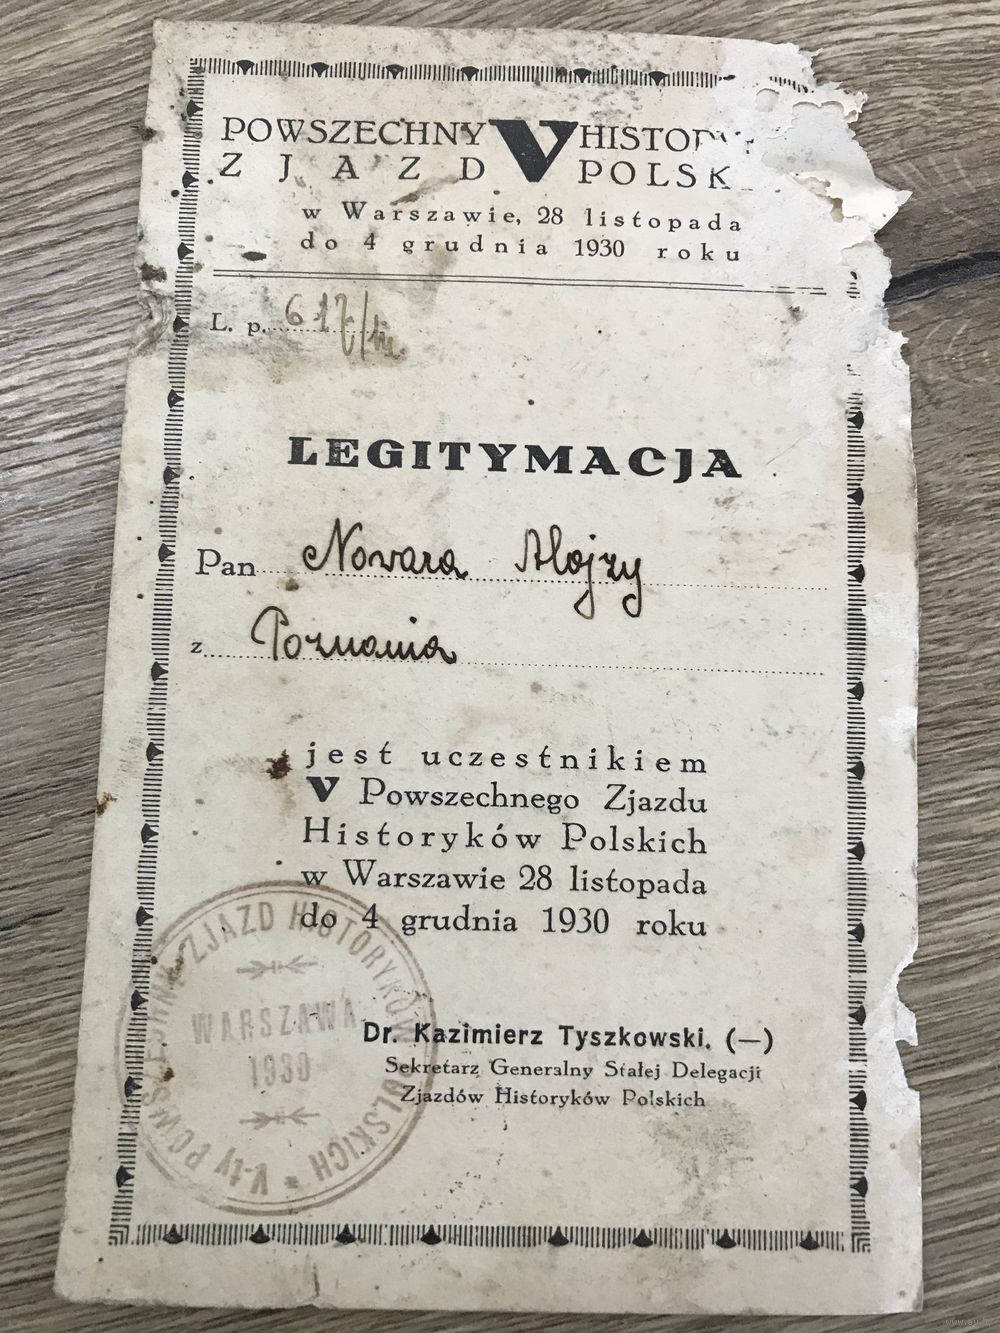 POWSZECHNY V HISTORY
ZJAZD POLSK
w Warszawie, 28 listopada
do 4 grudnia 1930 roku
L. p. 617/
LEGITYMACJA
Pan Nowara Alojzy
z Poznania
jest uczestnikiem
V Powszechnego Zjazdu
Historyków Polskich
w Warszawie 28 listopada
do 4 grudnia 1930 roku
V-ty POWSZECHNY ZJAZD HISTORYKÓW POLSKICH
WARSZAWA
1930
Dr. Kazimierz Tyszkowski. (—)
Sekretarz Generalny Stałej Delegacji
Zjazdów Historyków Polskich